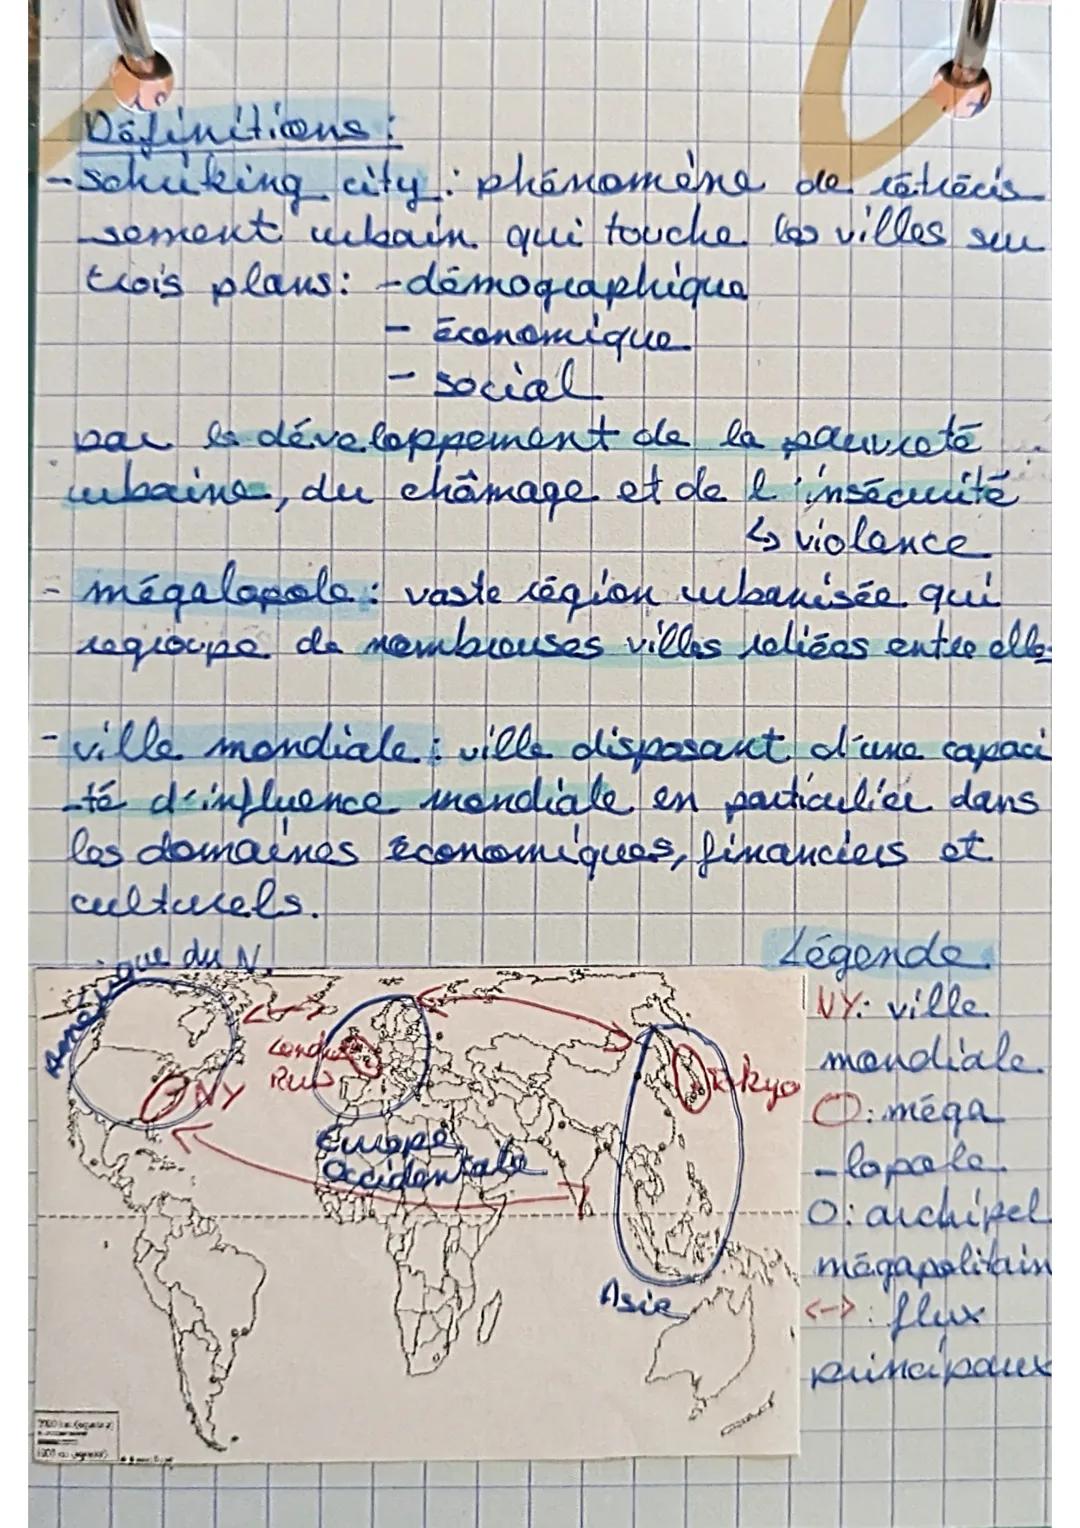 Définitions :
- schriking city : phénomène de rétrécis
sement urbain qui touche les villes sur
trois plans : - démographique
- économique
- social
par le développement de la pauvreté
urbaine, du chômage et de l'insécurité
↳ violence
- mégalopole : vaste région urbanisée qui
regroupe de nombreuses villes reliées entre elles
- ville mondiale : ville disposant d'une capaci
-té d'influence mondiale en particulier dans
les domaines économiques, financiers et
culturels.
Amérique du N.
Légende
NY : ville
mondiale
O : méga
-lopole
O : archipel
mégapolitain
<-> : flux
principaux
Londres
Paris
NY
Tokyo
Europe
Occidentale
Asie